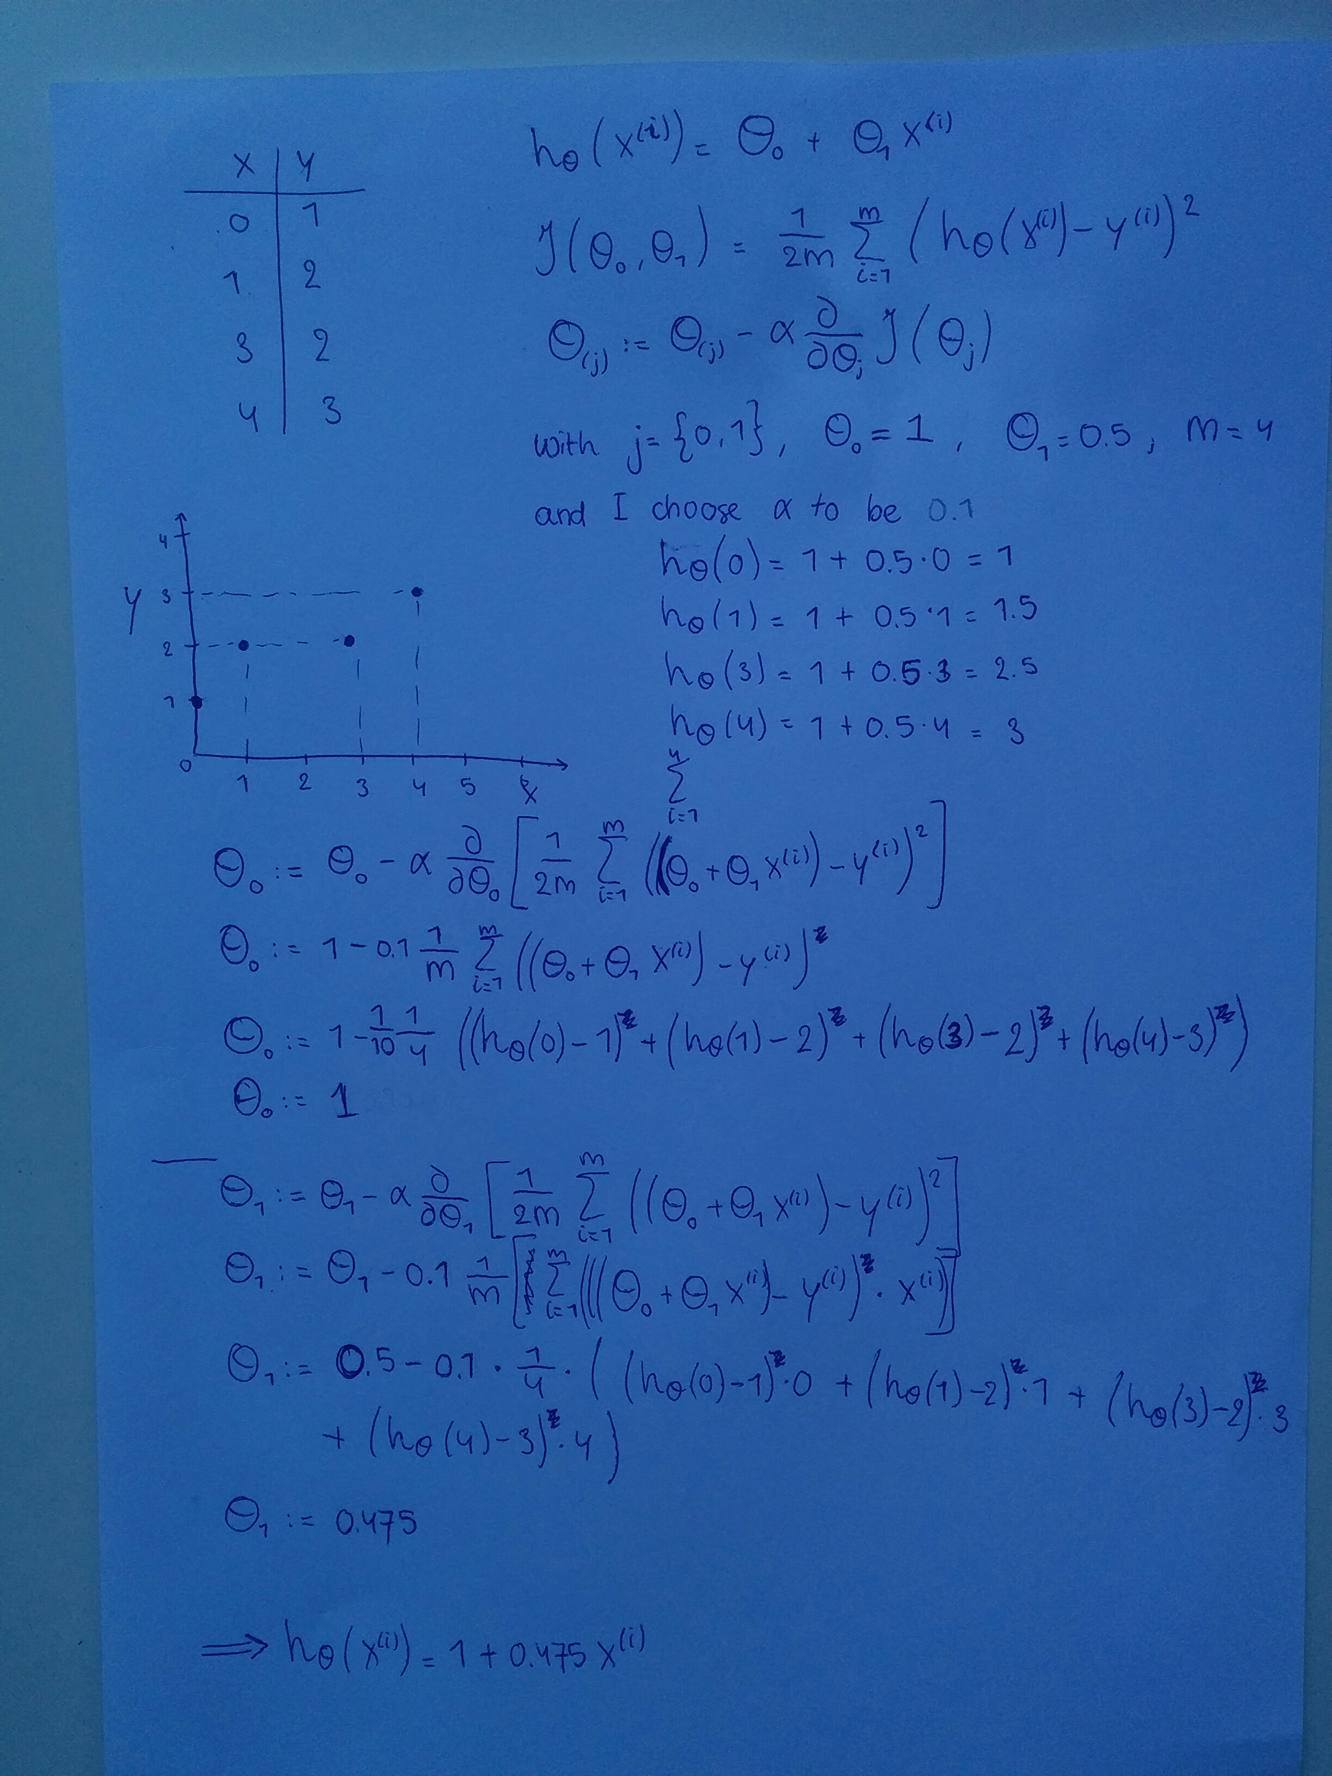 x | y
0 | 1
1 | 2
3 | 2
4 | 3
hθ(x⁽ⁱ⁾) = Θ₀ + Θ₁ x⁽ⁱ⁾
J(Θ₀, Θ₁) = 1/2m ∑_{i=1}^{m} (hθ(x⁽ⁱ⁾) - y⁽ⁱ⁾)²
Θ₍ⱼ₎ := Θ₍ⱼ₎ - α ∂/∂Θⱼ J(Θⱼ)
with j = {0,1}, Θ₀ = 1, Θ₁ = 0.5, m = 4
and I choose α to be 0.1
hθ(0) = 1 + 0.5·0 = 1
hθ(1) = 1 + 0.5·1 = 1.5
hθ(3) = 1 + 0.5·3 = 2.5
hθ(4) = 1 + 0.5·4 = 3
∑_{i=1}^{4}
4
y 3
2
1
0 1 2 3 4 5 x
Θ₀ := Θ₀ - α ∂/∂Θ₀ [1/2m ∑_{i=1}^{m} ((Θ₀ + Θ₁ x⁽ⁱ⁾) - y⁽ⁱ⁾)²]
Θ₀ := 1 - 0.1 1/m ∑_{i=1}^{m} ((Θ₀ + Θ₁ x⁽ⁱ⁾) - y⁽ⁱ⁾)
Θ₀ := 1 - 1/10 1/4 ((hθ(0) - 1) + (hθ(1) - 2) + (hθ(3) - 2) + (hθ(4) - 3))
Θ₀ := 1
Θ₁ := Θ₁ - α ∂/∂Θ₁ [1/2m ∑_{i=1}^{m} ((Θ₀ + Θ₁ x⁽ⁱ⁾) - y⁽ⁱ⁾)²]
Θ₁ := Θ₁ - 0.1 1/m [∑_{i=1}^{m} (((Θ₀ + Θ₁ x⁽ⁱ⁾) - y⁽ⁱ⁾) · x⁽ⁱ⁾)]
Θ₁ := 0.5 - 0.1 · 1/4 · ((hθ(0) - 1)·0 + (hθ(1) - 2)·1 + (hθ(3) - 2)·3
+ (hθ(4) - 3)·4)
Θ₁ := 0.475
⇒ hθ(x⁽ⁱ⁾) = 1 + 0.475 x⁽ⁱ⁾